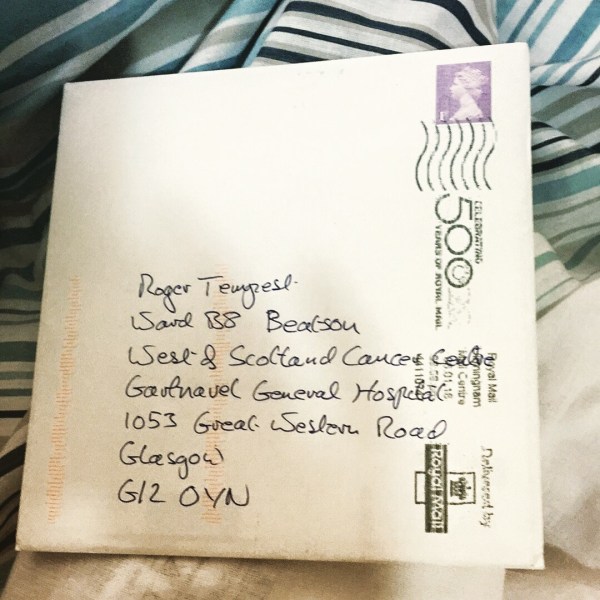 Roger Tempest
Ward B8 Beatson
West of Scotland Cancer Centre
Gartnavel General Hospital
1053 Great Western Road
Glasgow
G12 0YN
CELEBRATING
500
YEARS OF ROYAL MAIL
Royal Mail
Mail Centre
Delivered by
Royal Mail